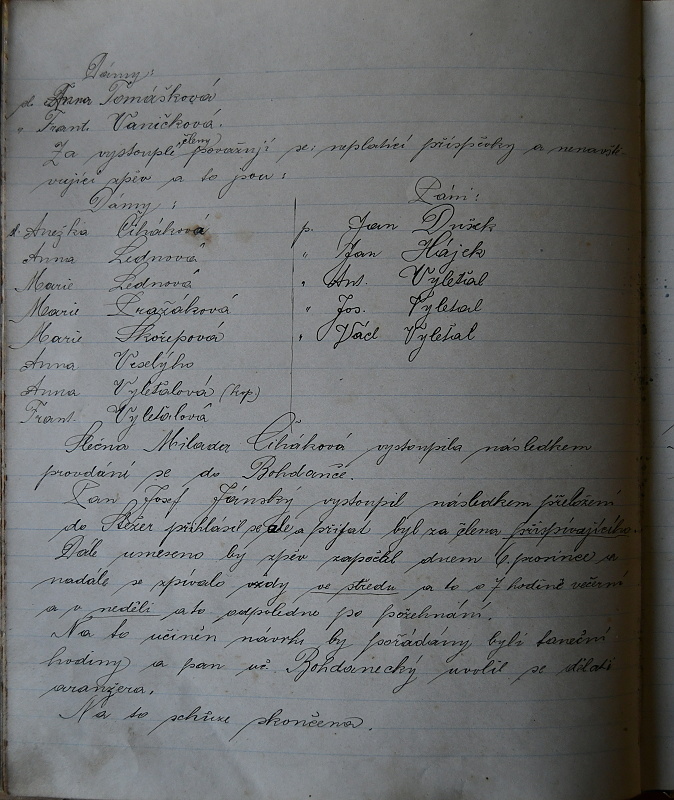 Dámy:
sl. Anna Tomášková
" Frant. Vaníčková.
Za vystouplé členy považují se: neplatící příspěvky a nenavště-
vující zpěv a to jsou:
Dámy: Páni:
sl. Anežka Ciháková p. Jan Dušek
Anna Lednová " Jan Hájek
Marie Lednová " Ant. Vyleťal
Marie Pražáková " Jos. Vyleťal
Marie Skořepová " Václ. Vyleťal
Anna Veselých
Anna Vyleťalová
Frant. Vyleťalová
Slečna Milada Čiháková vystoupila následkem
provdání se do Bohdanče.
Pan Josef Jánský vystoupil následkem přeložení
do Stěžer přihlásil se ale a přijat byl za člena přispívajícího.
Dále usneseno by zpěv započal dnem 6. prosince a
nadále se zpívalo vždy ve středu a to o 7 hodině večerní
a v neděli a to odpoledne po požehnání.
Na to učiněn navrh by pořádány byli taneční
hodiny a pan uč. Bohdanecký uvolil se dělati
aranžera.
Na to schůze skončena.